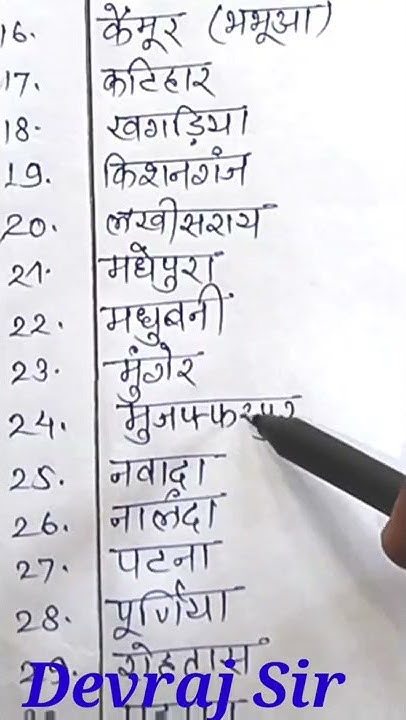 16. कैमूर (भभूआ)
17. कटिहार
18. खगड़िया
19. किशनगंज
20. लखीसराय
21. मधेपुरा
22. मधुबनी
23. मुंगेर
24. मुजफ्फरपुर
25. नवादा
26. नालंदा
27. पटना
28. पूर्णिया
29. रोहतास
Devraj Sir